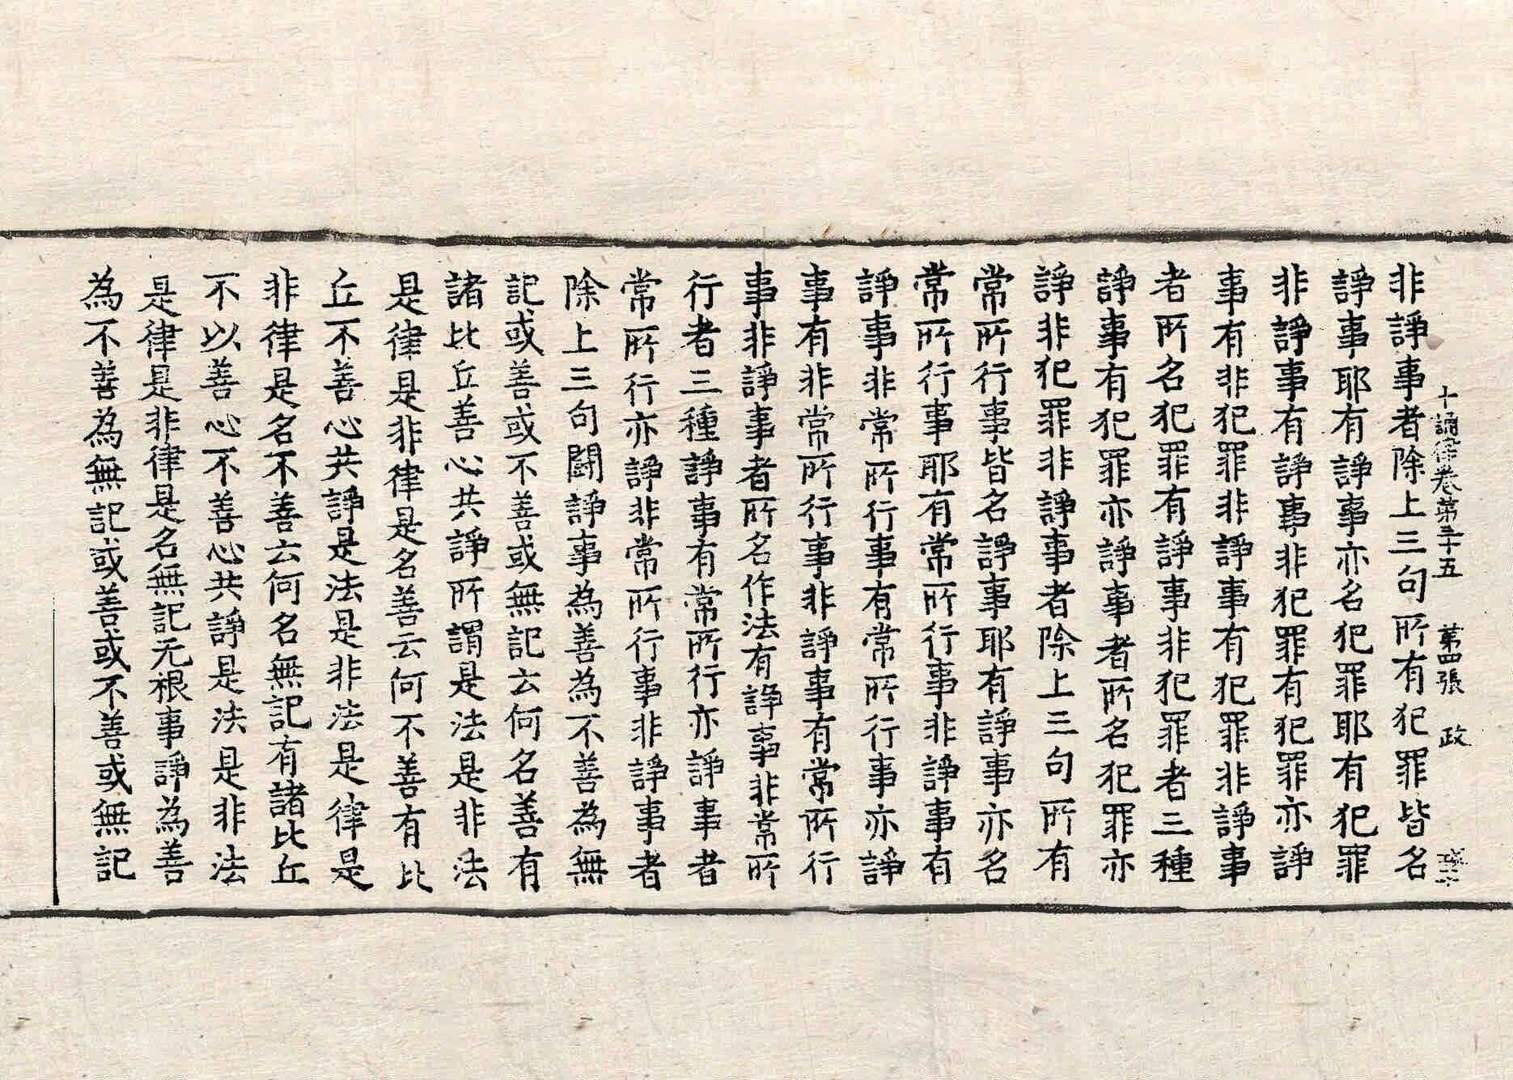 十誦律卷第三十五 第四張 政
非諍事者除上三句所有犯罪皆名
諍事耶有諍事亦名犯罪耶有犯罪
非諍事有諍事非犯罪有犯罪亦諍
事有非犯罪非諍事有犯罪非諍事
者所名犯罪有諍事非犯罪者三種
諍事有犯罪亦諍事者所名犯罪亦
諍非犯罪非諍事者除上三句所有
常所行事皆名諍事耶有諍事亦名
常所行事耶有常所行事非諍事有
諍事非常所行事有常所行事亦諍
事有非常所行事非諍事有常所行
事非諍事者所名作法有諍事非常所
行者三種諍事有常所行亦諍事者
常所行亦諍非常所行事非諍事者
除上三句鬪諍事為善為不善為無
記或善或不善或無記云何名善有
諸比丘善心共諍所謂是法是非法
是律是非律是名善云何不善有比
丘不善心共諍是法是非法是律是
非律是名不善云何名無記有諸比丘
不以善心不善心共諍是法是非法
是律是非律是名無記无根事諍為善
為不善為無記或善或不善或無記